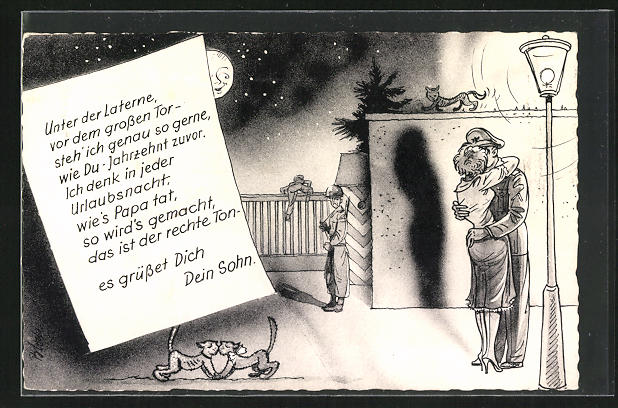 Unter der Laterne,
vor dem großen Tor-
steh' ich genau so gerne,
wie Du - Jahrzehnt zuvor.
Ich denk in jeder
Urlaubsnacht:
wie's Papa tat,
so wird's gemacht,
das ist der rechte Ton-
es grüßet Dich
Dein Sohn.